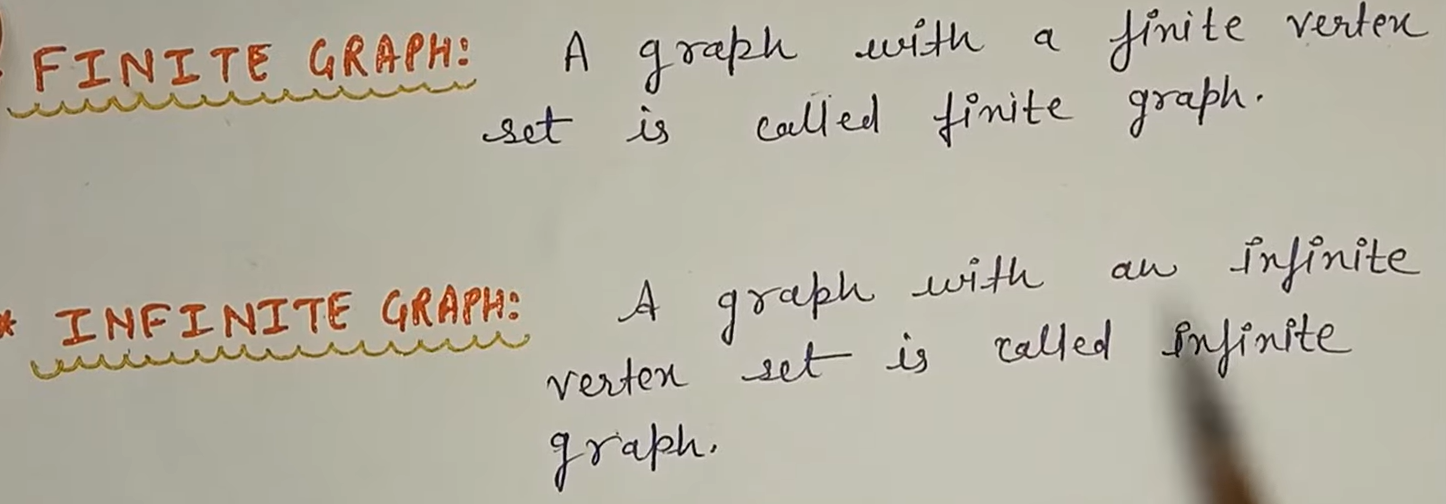 FINITE GRAPH: A graph with a finite vertex
set is called finite graph.
* INFINITE GRAPH: A graph with an infinite
vertex set is called infinite
graph.